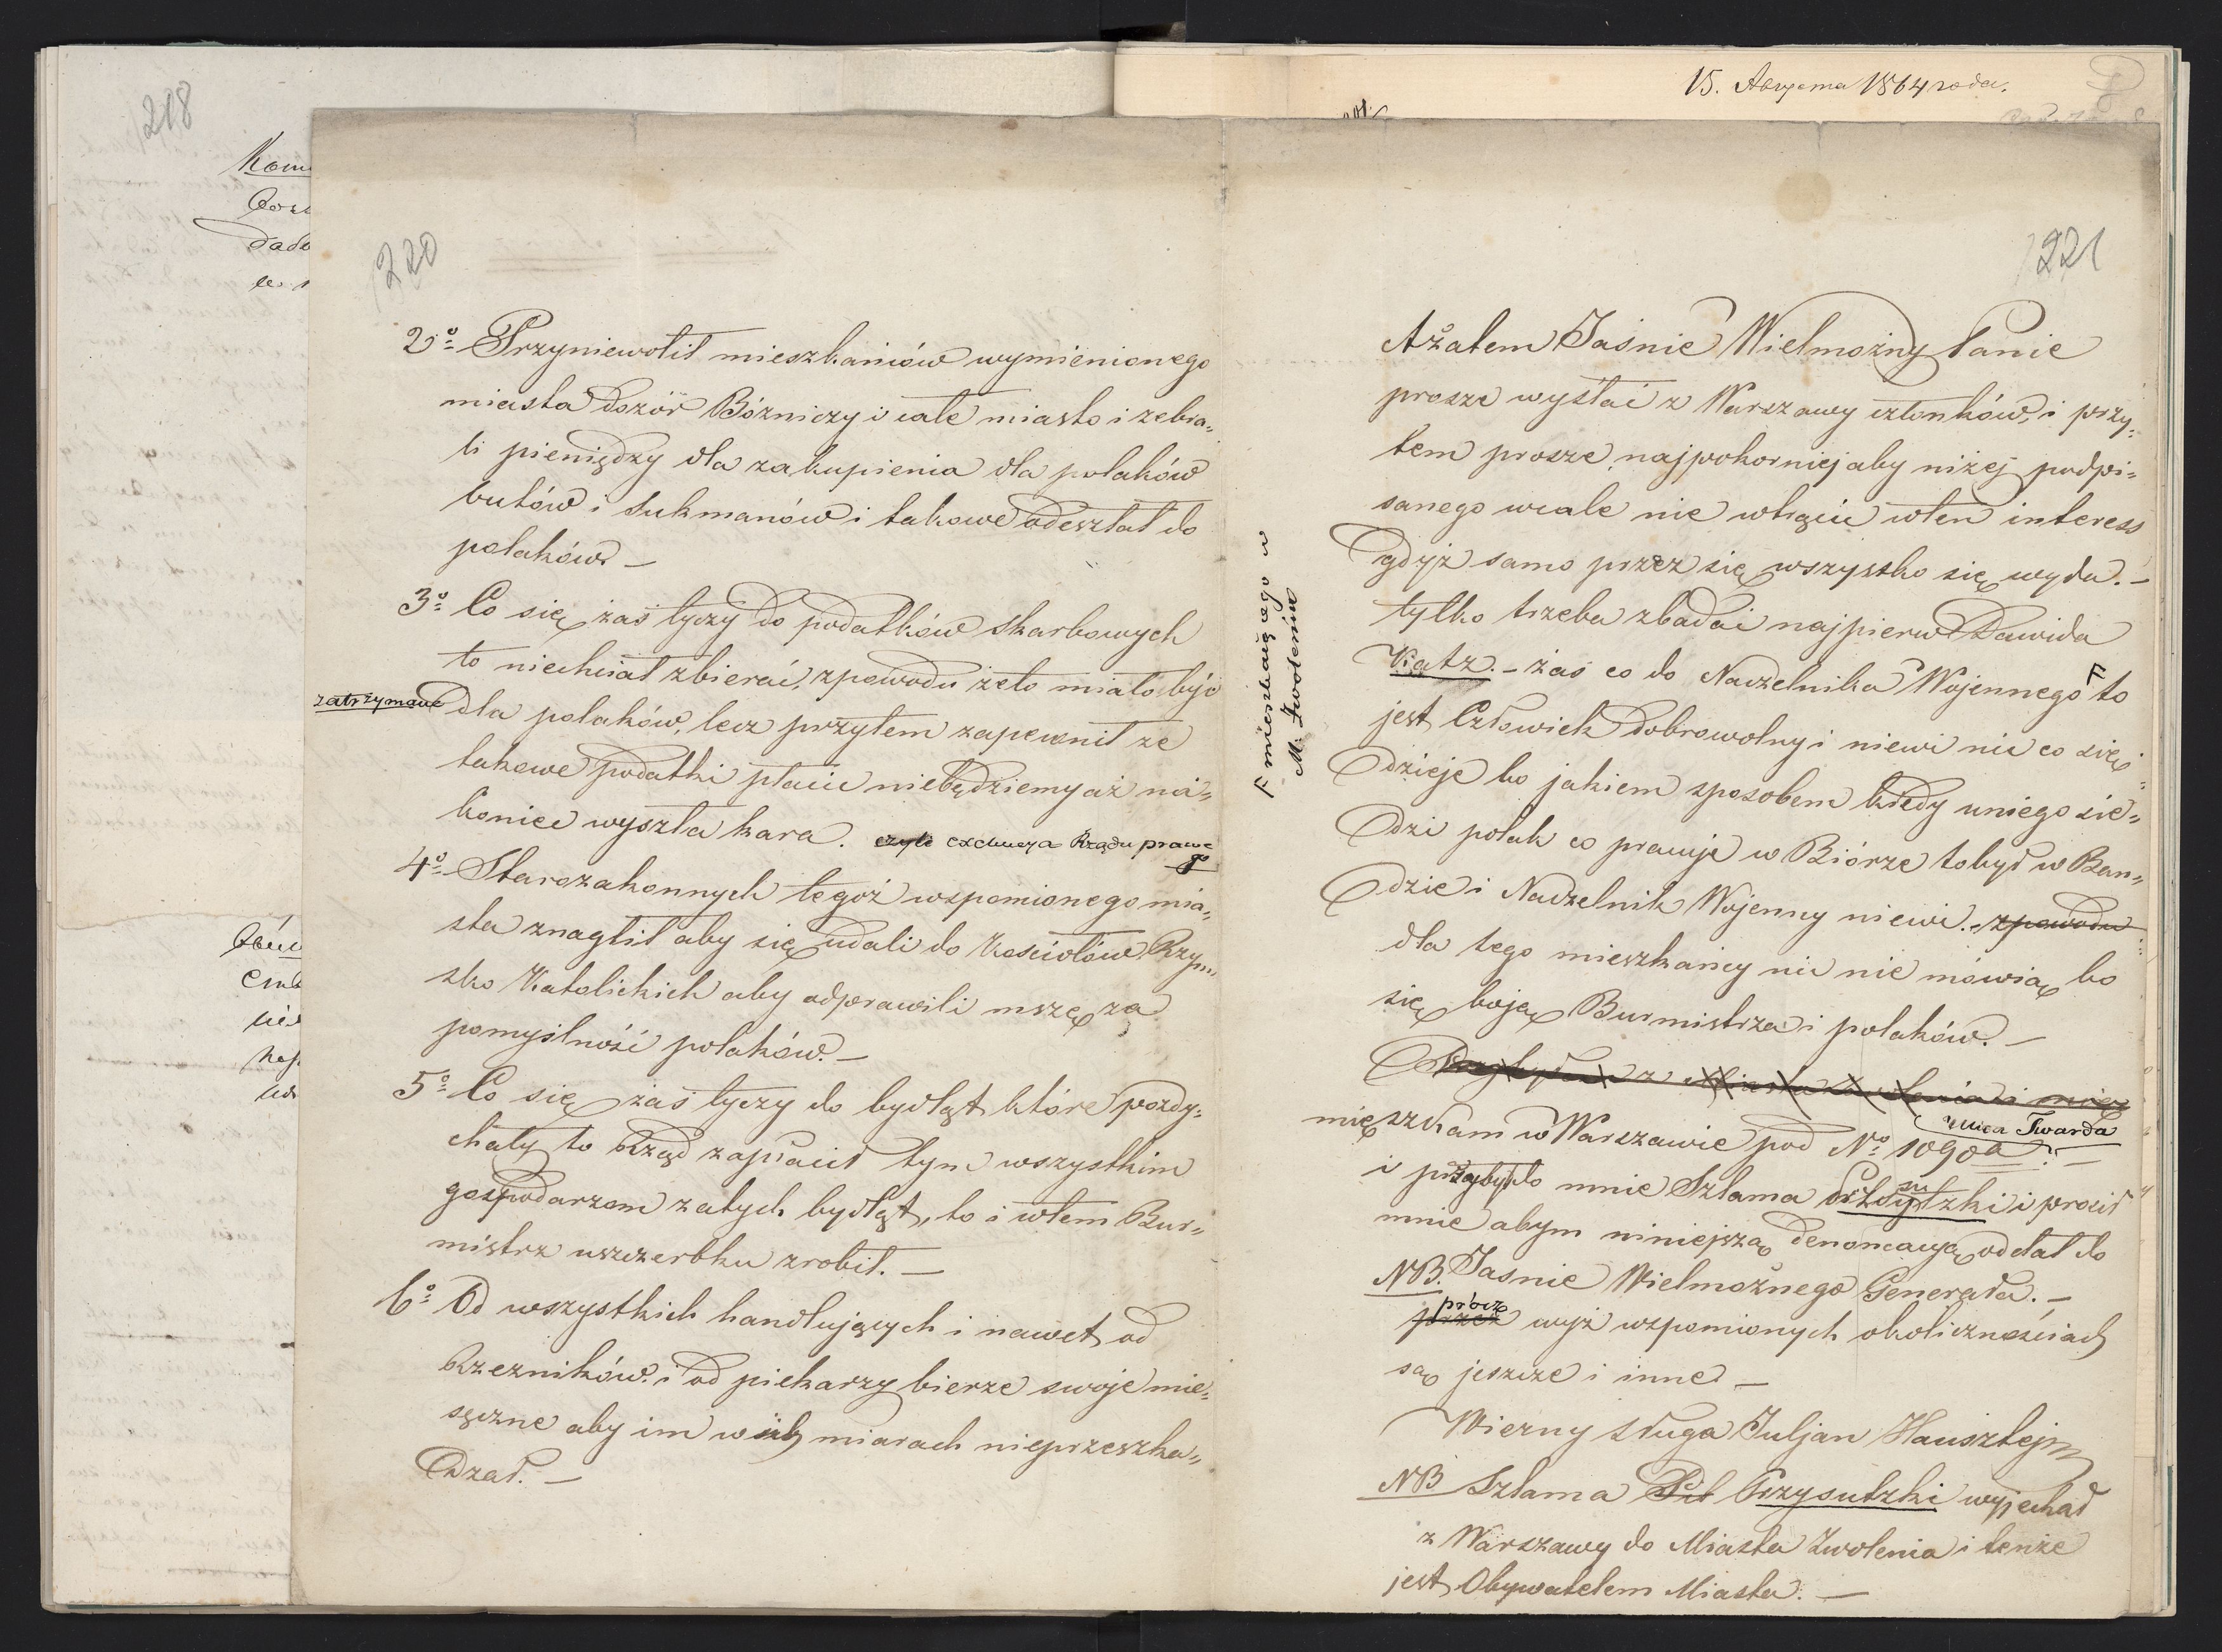 218
Kom
dado
15. Августа 1864 года.
220
2º Przyniewolił mieszkanców wymienionego
miasta dozór Bóżniczy i całe miasto i zebra„
li pieniędzy dla zakupienia dla polaków
butów i sukmanów i takowe odeształ do
polaków –
3º Co się zaś tyczy do podatków skarbowych
to niechciał zbierać, zpowodu żeto miało być
zatrzymane dla polaków, lecz przytem zapewnił że
takowe podatki płacić niebędziemy aż na„
koniec wyszła kara. czyli exckucya Rządu prawe
go
4º Starozakonnych tegoż wspomionego mia„
sta znaglił aby się udali do Kościołów Rzym„
sko Katolickich aby odprawili mszę za
pomyślność polaków. –
5º Co się zaś tyczy do bydląt które pozdy„
chały to Rząd zapłacił tym wszystkim
gospodarzom zatych bydląt, to i wtem Bur„
mistrz uszczerbku zrobił. –
6º Od wszystkich handlujących i nawet od
Rzezników i od piekarzy bierze swoje mie„
sęczne aby im w ich miarach nieprzeszka„
dzał. –
221
Ażatem Jaśnie Wielmożny Panie
prosze wysłać z Warszawy członków, i przy„
tem prosze najpokorniej aby niżej podpi„
sanego wcale nie wtrącić wten interess
gdyż samo przez się wszystko się wyda. –
tylko trzeba zbadać najpierw Dawida
Katz. – zaś co do Naczelnika Wojennego F to
F mieszkaiącego w
M: Zwoleniu
jest Człowiek dobrowolny i niewi nic co się
dzieje bo jakiem sposobem kiedy uniego sie„
dzi polak co pracuje w Biórze tobył w Ban„
dzie i Naczelnik Wojenny niewi. zpowodu
dla tego mieszkańcy nic nie mówią bo
się boją Burmistrza i polaków. –
mięszkam w Warszawie pod Nº 1090a. –
ulica Twarda
i przybył do mnie Szlama Przysutzki i prosił
mnie abym niniejszą denoncacyą oddał do
NB. Jasnie Wielmożnego Generała. –
przez prócz wyż wspomionych okolicznościach
są jeszcze i inne –
Wierny sługa Juljan Hausztejn
NB Szlama Przysutzki wyjechał
z Warszawy do Miasta Zwolenia i tenże
jest Obywatelem Miasta. –